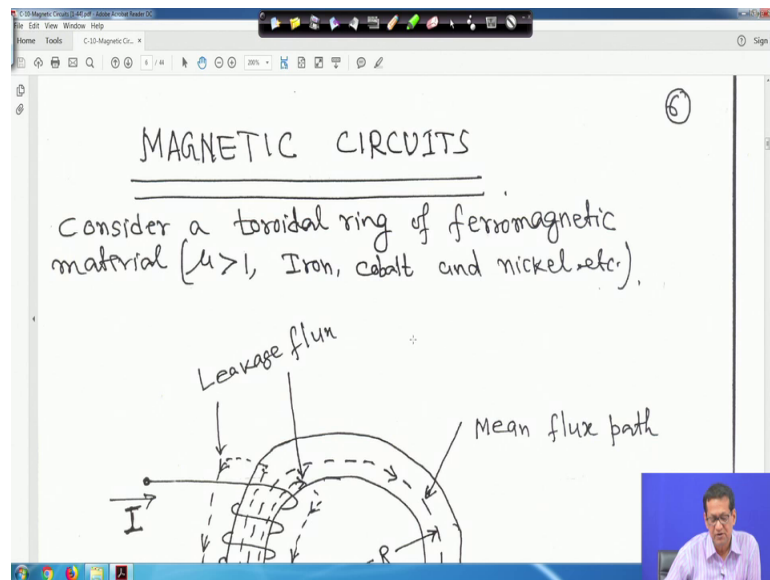 C-10-Magnetic Circuits [1-44].pdf - Adobe Acrobat Reader DC
File Edit View Window Help
Home Tools C-10-Magnetic Cir... × Sign
6 / 44 200%
6
MAGNETIC CIRCUITS
Consider a toroidal ring of ferromagnetic
material (μ>1, Iron, cobalt and nickel etc.).
Leakage flux
Mean flux path
I
R